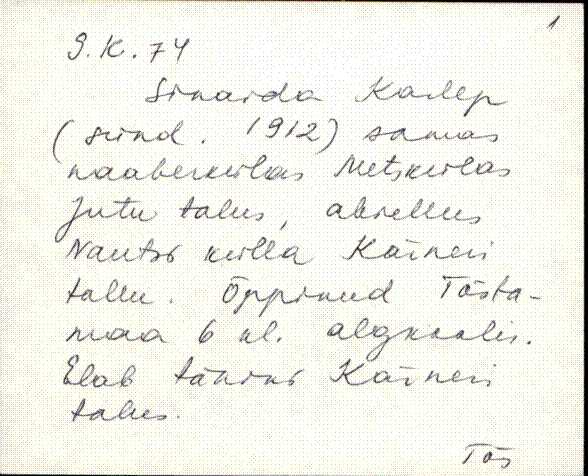 1
S.K. 74
Sinaida Kallep
(sünd. 1912) samas
naaberkülas Metskülas
Jutu talus, abiellus
Nautsi külla Käineri
tallu. Õppinud Tõsta-
maa 6 kl. algkoolis.
Elab tänini Käineri
talus.
Tõs